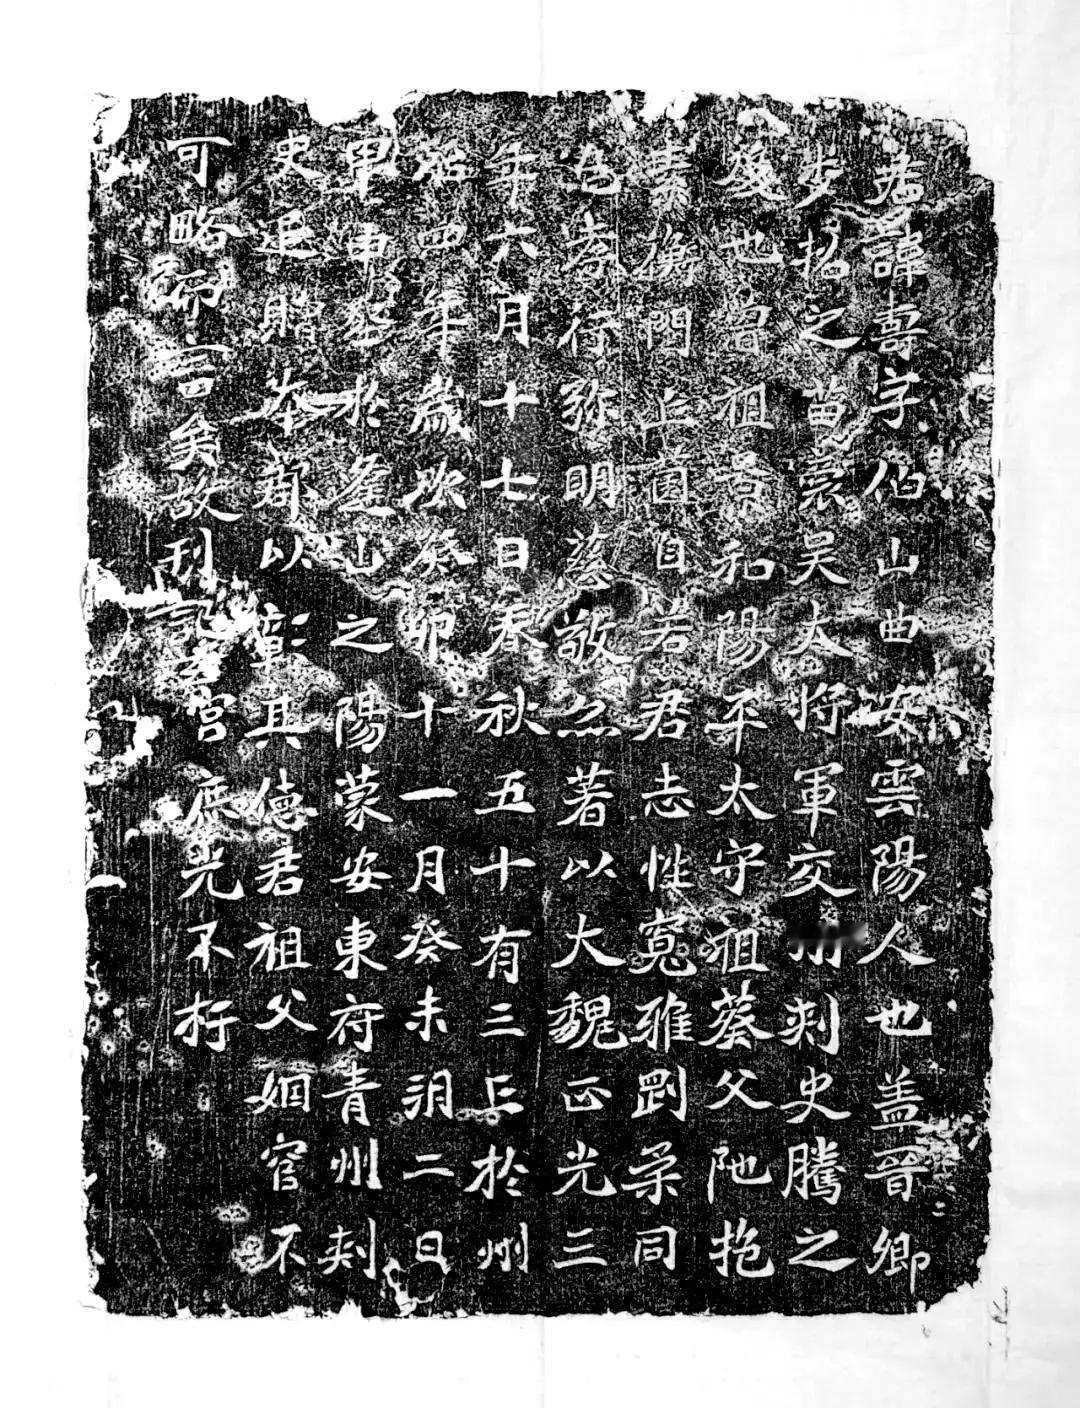 君諱壽字伯山曲安雲陽人也盖晉卿
步招之苗裔吴大將軍交州刺史騰之
後也曾祖景和陽平太守祖葵父陁抱
素衡門丘園自若君志性寬雅剛柔同
為孝行弥明慈敬烝著以大魏正光三
年六月十七日春秋五十有三亡於州
治四年歲次癸卯十一月癸未朔二日
甲申葬於逢山之陽蒙安東府青州刺
史追贈本郡以彰其德君祖父姻官不
可略而言矣故刊記宫庶光不朽